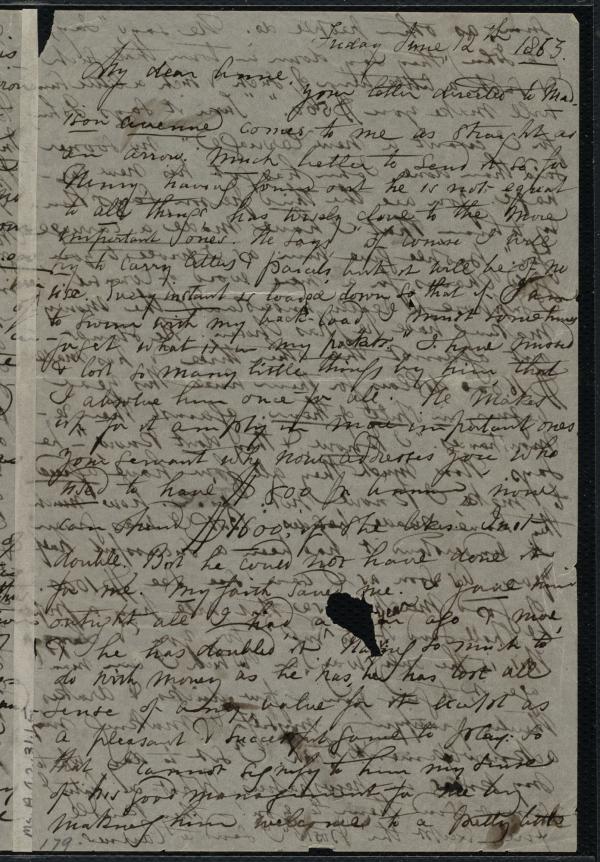 Friday June 12th 1863.
My dear Anne.
your letter directed to Mad
ison avenue comes to me as straight as
an arrow. Much better to send it so, for
Henry having found out he is not equal
to all things has wisely clove to the more
important ones. He says "of course I will
try to carry letters & parcels but it will be of no
use. Every instant is loaded down so that if I am
to swim with my back-load I must sometimes
forget what is in my pockets." I have missed
& lost so many little things by him that
I absolve him once for all. He makes
up for it amply in more important ones
your servant who now addresses you who
used to have $800 per annum now
can spend $1600, if she likes. Just
double. But he could not have done it
for me. My faith saved me. I gave him
outright all I had a year ago & more
& he has doubled it. Having so much to
do with money as he has, he has lost all
sense of any value for it except as
a pleasant & successful game to play. so
that I cannot signify to him my sense
of his good management for me by
making him welcome to a pretty little
79